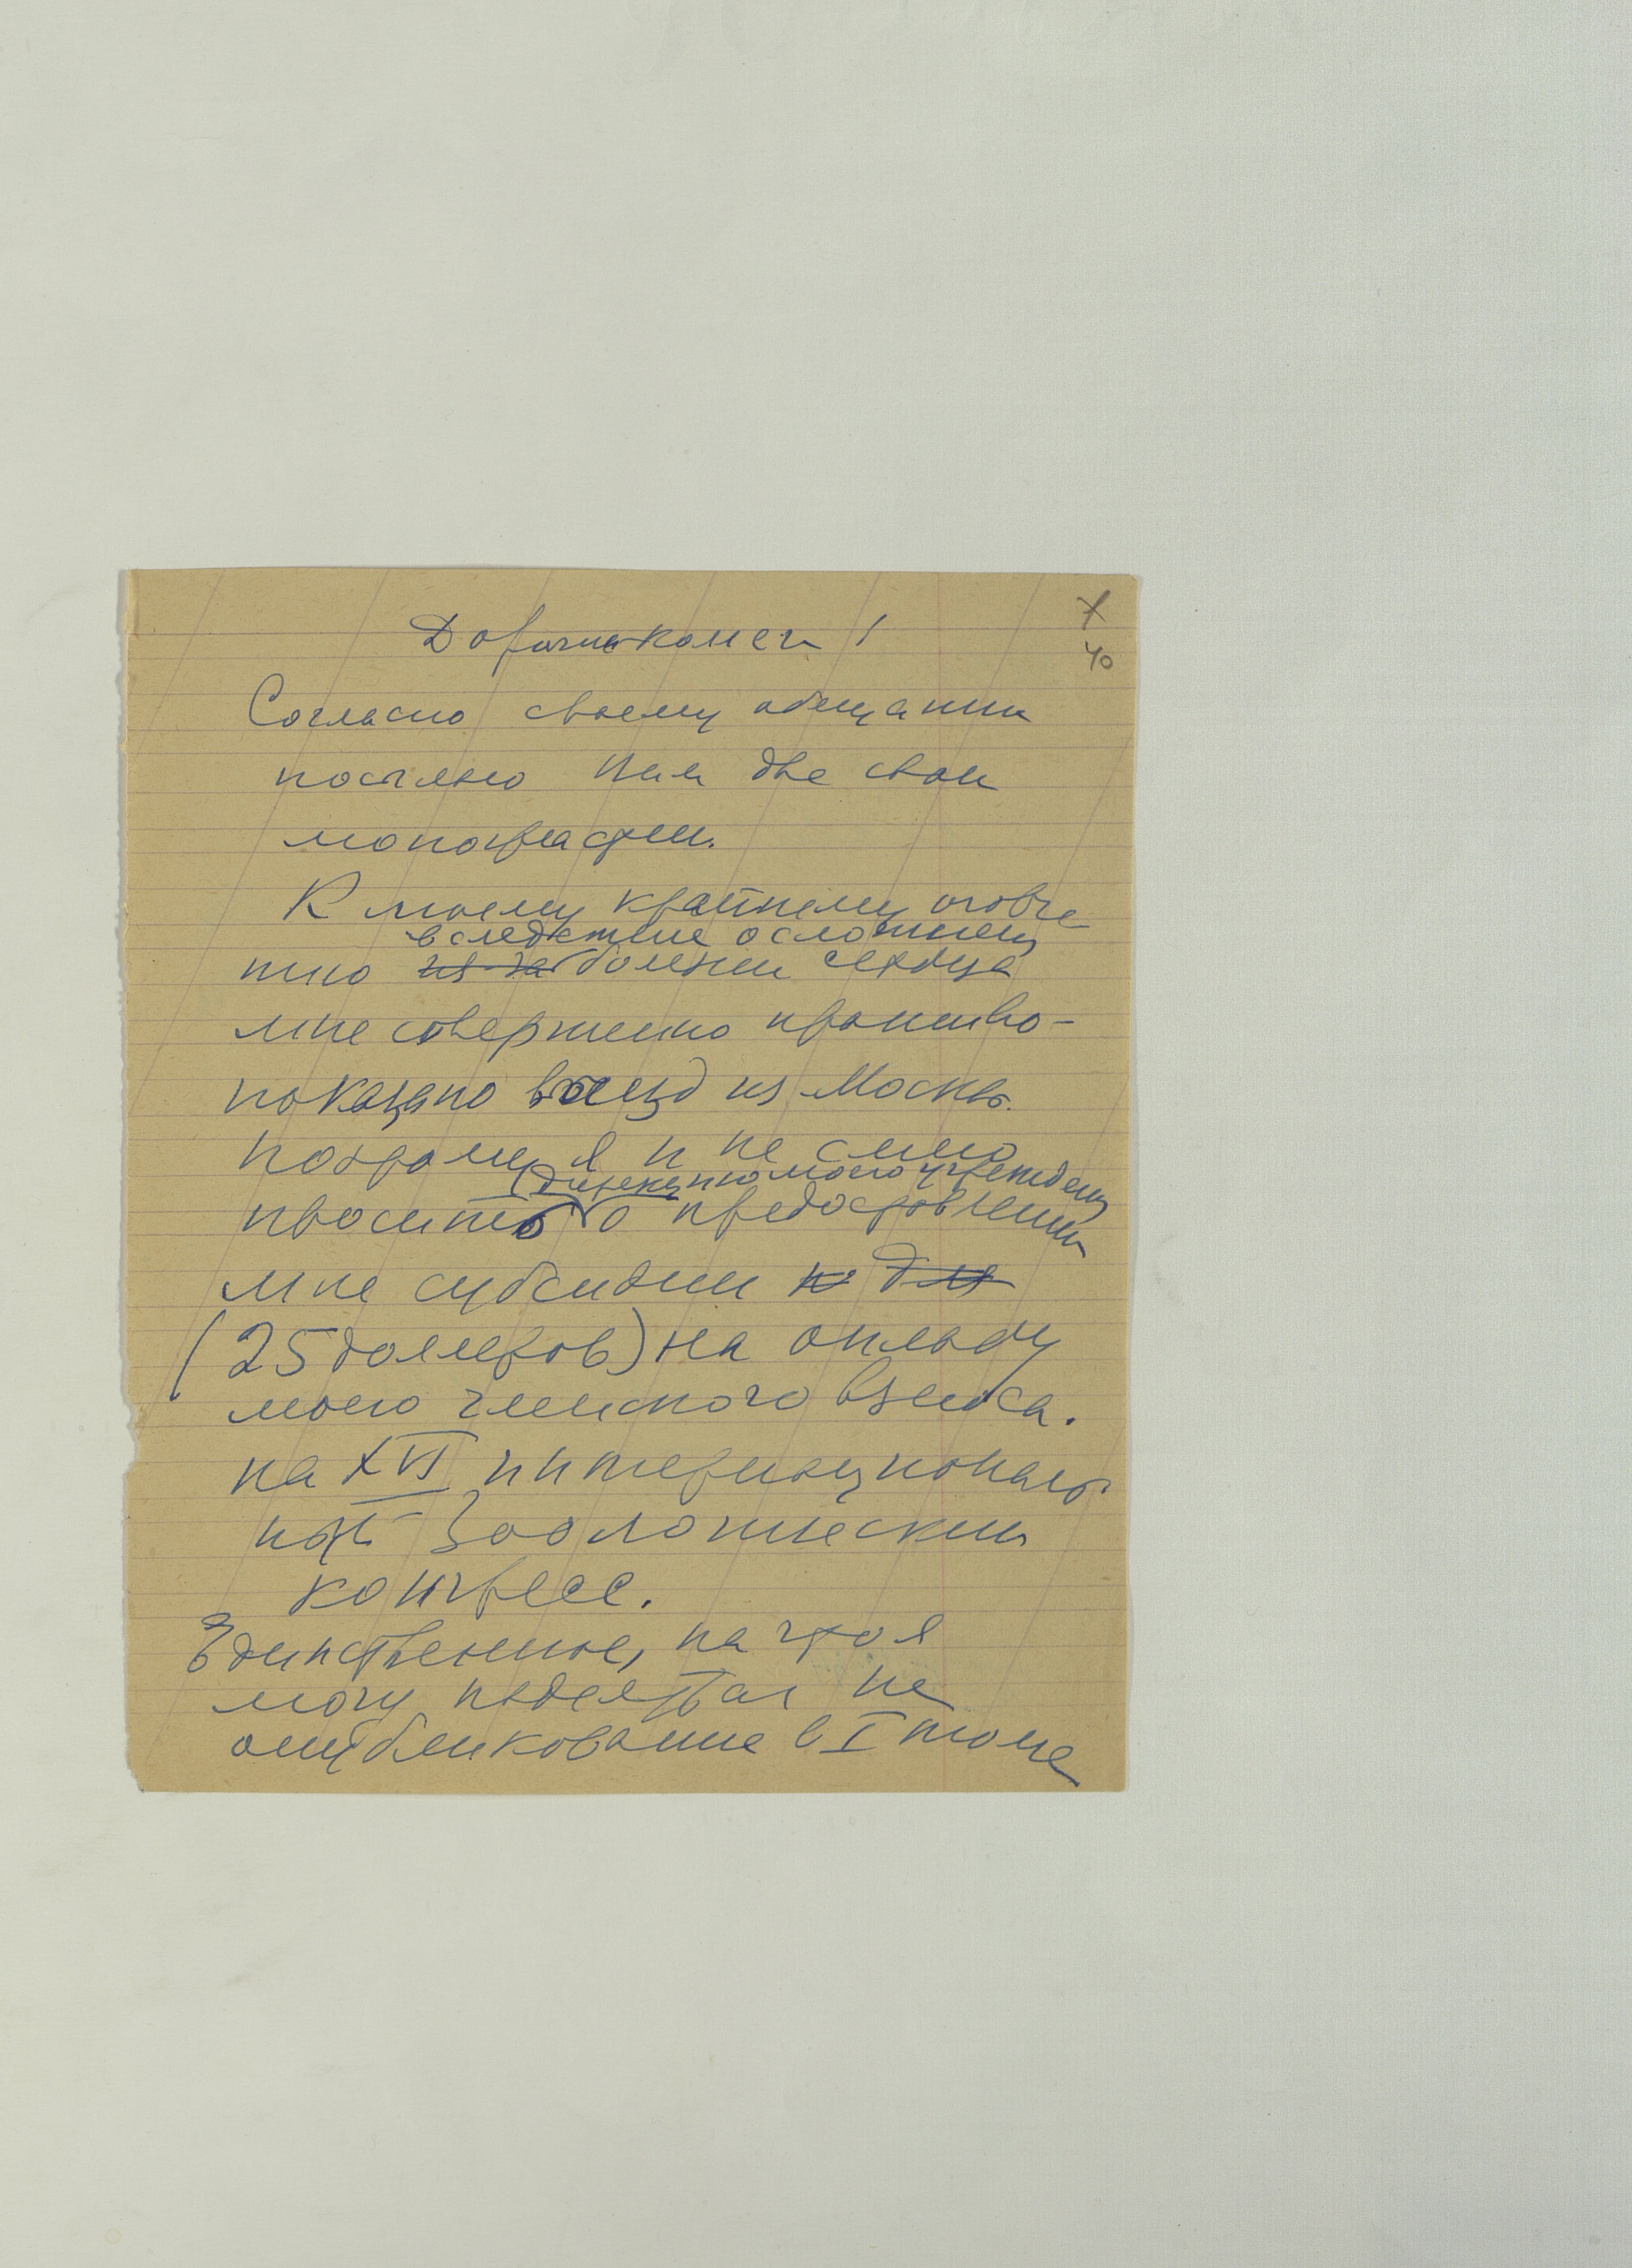 Дорогие коллеги!
40
Согласно своему обещанию
посылаю Вам две свои
монографии.
К моему крайнему огорче
вследствие осложнений
нию из-за болезни сердца
мне совершенно противо-
показано выезд из Москвы.
Поэтому я и не смею
дирекцию моего учреждения
просить о предоставлении
мне субсидии к для
(25 долларов) на оплату
моего членского взноса.
на XVI интернациональ
ный Зоологический
конгресс.
Единственное, на что я
могу надеяться на
опубликование в I томе